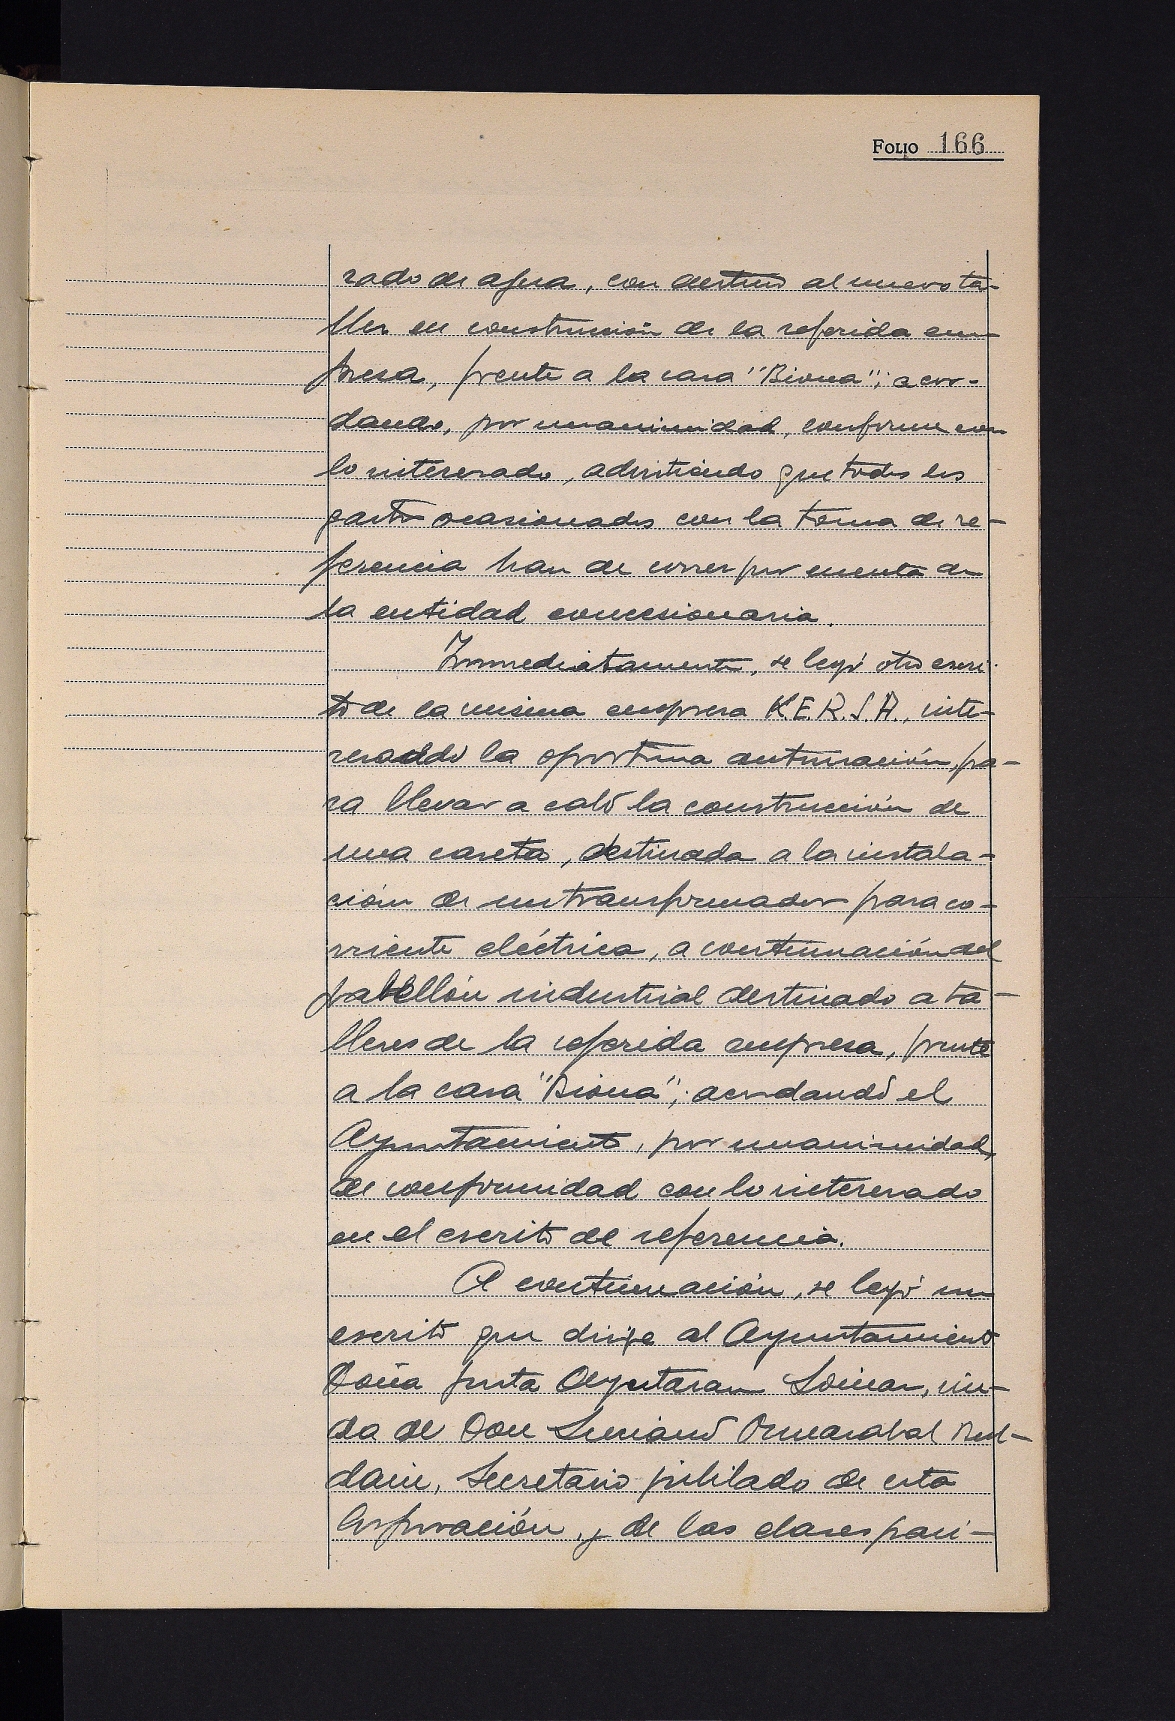 FOLIO 166
rado de agua, con destino al nuevo ta-
ller en construcción de la referida em-
presa, frente a la casa "Biona"; acor-
dando, por unanimidad, conforme con
lo interesado, advirtiendo que todos los
gastos ocasionados con la toma de re-
ferencia han de correr por cuenta de
la entidad concesionaria.
Inmediatamente, se leyó otro escri-
to de la misma empresa K.E.R.S.A., inte-
resando la oportuna autorización, pa-
ra llevar a cabo la construcción de
una caseta, destinada a la instala-
ción de un transformador para co-
rriente eléctrica, a continuación del
pabellón industrial destinado a ta-
lleres de la referida empresa, frente
a la casa "Biona"; acordando el
Ayuntamiento, por unanimidad,
de conformidad con lo interesado
en el escrito de referencia.
A continuación, se leyó un
escrito que dirige al Ayuntamiento
Doña Justa viu-
da de Don Luciano
Secretario jubilado de esta
Corporación, y de las clases pasi-